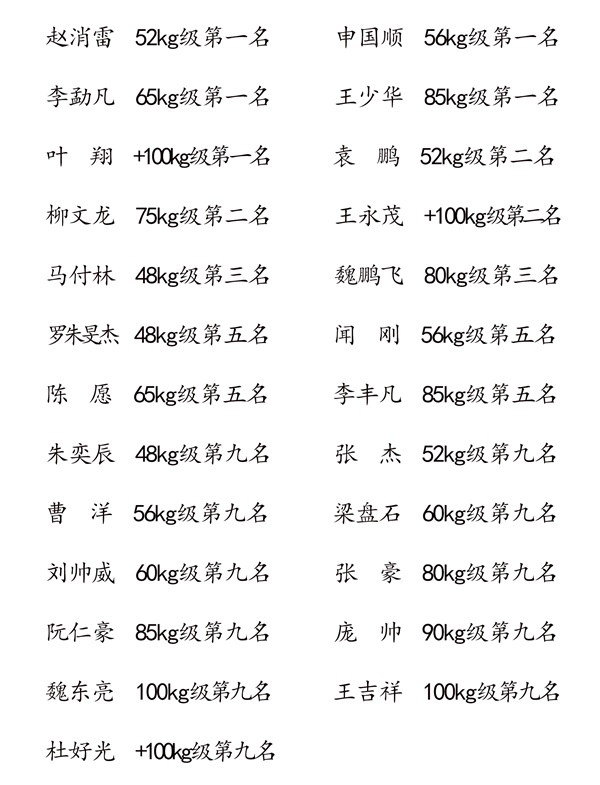 赵消雷 52kg级第一名 申国顺 56kg级第一名
李勐凡 65kg级第一名 王少华 85kg级第一名
叶 翔 +100kg级第一名 袁 鹏 52kg级第二名
柳文龙 75kg级第二名 王永茂 +100kg级第二名
马付林 48kg级第三名 魏鹏飞 80kg级第三名
罗朱旻杰 48kg级第五名 闻 刚 56kg级第五名
陈 愿 65kg级第五名 李丰凡 85kg级第五名
朱奕辰 48kg级第九名 张 杰 52kg级第九名
曹 洋 56kg级第九名 梁盘石 60kg级第九名
刘帅威 60kg级第九名 张 豪 80kg级第九名
阮仁豪 85kg级第九名 庞 帅 90kg级第九名
魏东亮 100kg级第九名 王吉祥 100kg级第九名
杜好光 +100kg级第九名